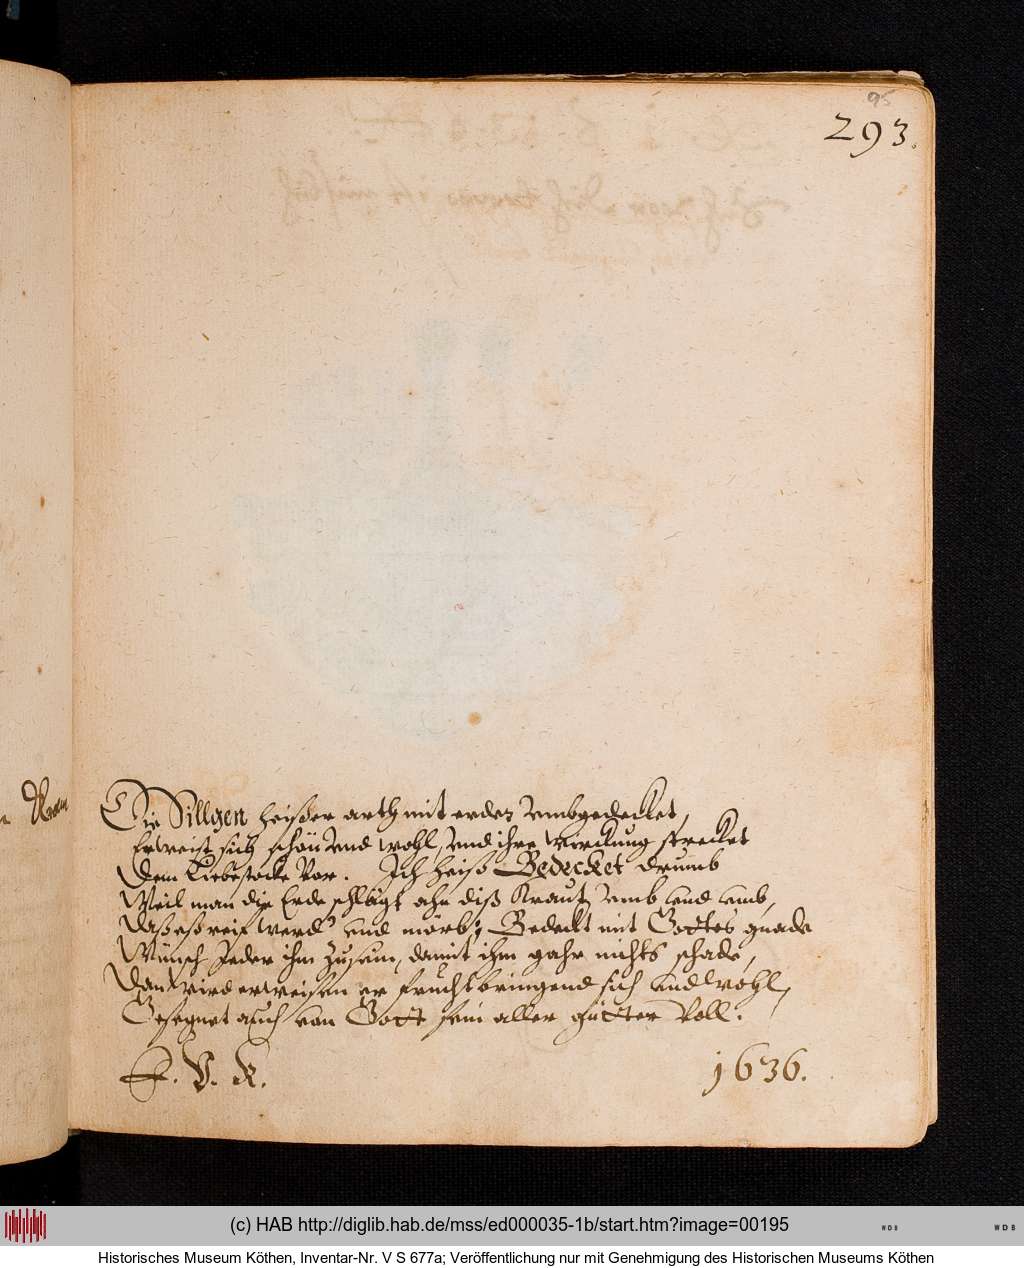 95
293.
Die Sillgen heißer arth mit erden umbgedecket,
Erweist sich schön und wohl, und ihre wirckung strecket
Dem Liebestocke Vor. Ich heiß Bedecket drumb
Weil man die Erde schlägt ahn diß Kraut umb und umb,
Daß es reif werd und mörb; Bedeckt mit Gottes gnade
Wünsch Jeder ihm zusein, damit ihm gahr nichts schade,
Dan wird erweisen er fruchtbringend sich und wohl,
Gesegnet auch von Gott sein aller gütter Voll.
F. V. K.
1636.
(c) HAB http://diglib.hab.de/mss/ed000035-1b/start.htm?image=00195
WDB
WDB
Historisches Museum Köthen, Inventar-Nr. V S 677a; Veröffentlichung nur mit Genehmigung des Historischen Museums Köthen